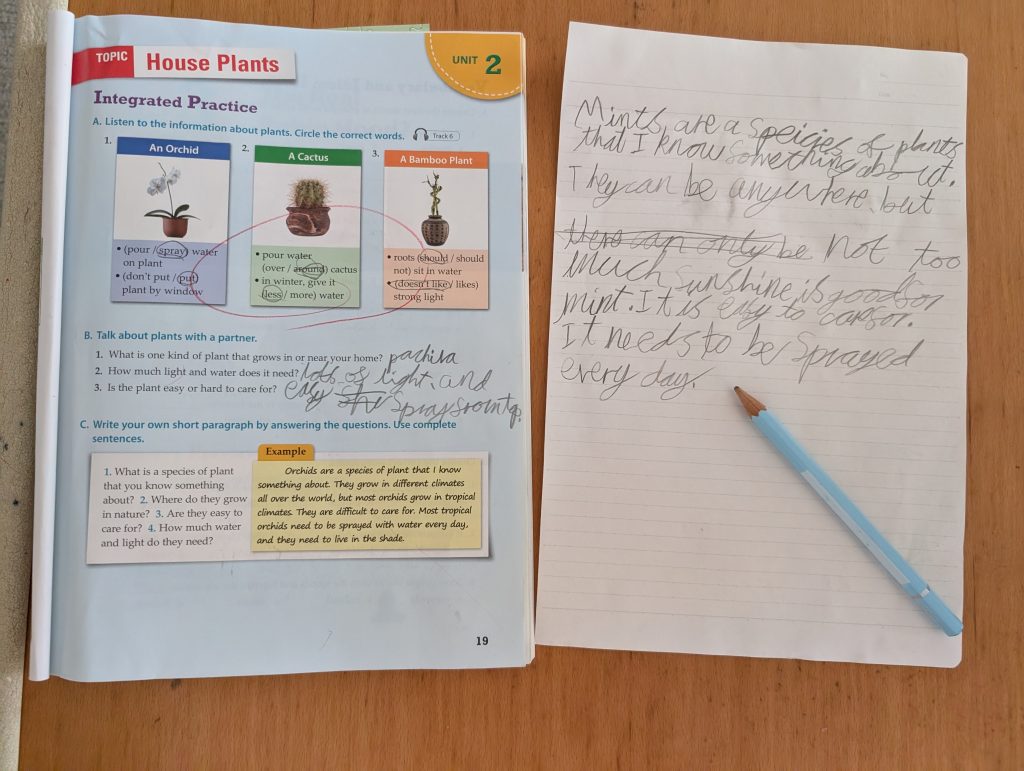 TOPIC House Plants
UNIT 2
Integrated Practice
A. Listen to the information about plants. Circle the correct words. Track 6
1.
An Orchid
• (pour / spray) water
on plant
• (don't put / put)
plant by window
2.
A Cactus
• pour water
(over / around) cactus
• in winter, give it
(less / more) water
3.
A Bamboo Plant
• roots (should / should
not) sit in water
• (doesn't like / likes)
strong light
B. Talk about plants with a partner.
1. What is one kind of plant that grows in or near your home? pachira
2. How much light and water does it need? lots of light, and
3. Is the plant easy or hard to care for? easy
C. Write your own short paragraph by answering the questions. Use complete
sentences.
1. What is a species of plant
that you know something
about? 2. Where do they grow
in nature? 3. Are they easy to
care for? 4. How much water
and light do they need?
Example
Orchids are a species of plant that I know
something about. They grow in different climates
all over the world, but most orchids grow in tropical
climates. They are difficult to care for. Most tropical
orchids need to be sprayed with water every day,
and they need to live in the shade.
19
Mints are a speicies of plants
that I know something about.
They can be anywhere, but
there can only be not too
much sunshine is good for
mint. It is easy to care for.
It needs to be sprayed
every day.